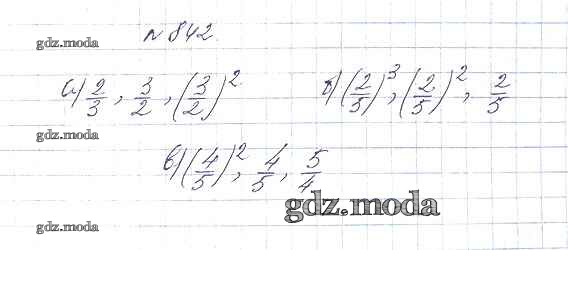 № 842.
gdz.moda
а) 2/3, 3/2, (3/2)² б) (2/5)³, (2/5)², 2/5
gdz.moda
в) (4/5)², 4/5, 5/4
gdz.moda
gdz.moda